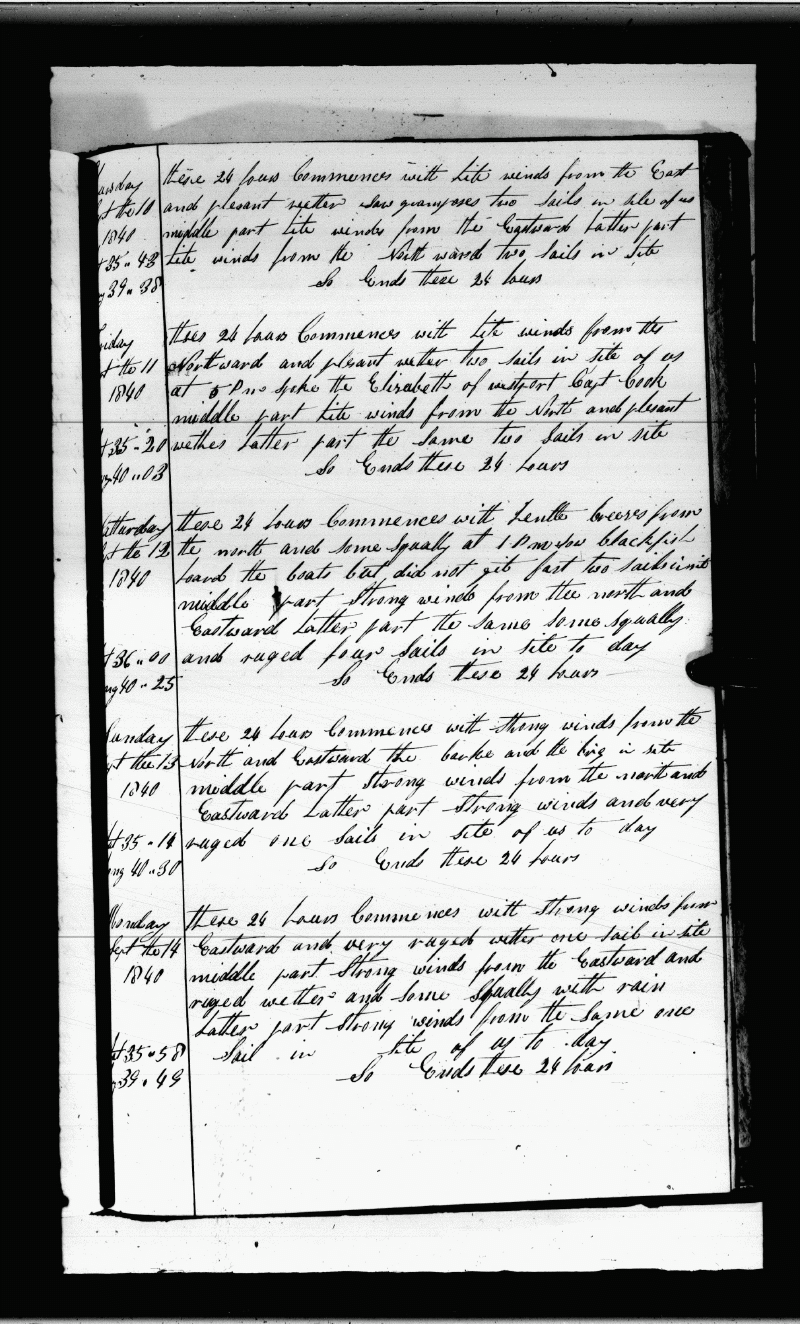 these 24 hours Commences with Lite winds from the East
and plesant wether saw gramposes two Sails in site of us
middle part Lite winds from the Eastward Latter part
Lite winds from the North ward two Sails in Site
So Ends these 24 hours
1840
35 " 43
39 " 38
thees 24 hours Commences with Lite winds from the
Northward and plesant wether two Sails in site of us
at 5 Pm Spoke the Elizabeth of westport Capt Cook
middle part Lite winds from the North and plesant
wether Latter part the Same two Sails in site
So Ends these 24 hours
the 11
1840
35 " 20
40 " 03
these 24 hours Commences with breezes from
the north and some Squally at 1 Pm saw blackfish
Loard the boats but did not git fast two sails in sit
middle part Strong winds from the north and
Eastward Latter part the same some squally
and raged four Sails in site to day
So Ends these 24 hours
Satturday
Sept the 12
1840
36 " 00
40 " 25
these 24 hours Commences with Strong winds from the
North and Eastward the barke and the brig in site
middle part Strong winds from the north and
Eastward Latter part Strong winds and very
raged one Sails in Site of us to day
So Ends these 24 hours
Sunday
the 13
1840
Lat 35 " 14
Long 40 " 30
these 24 hours Commences with Strong winds from
Eastward and very raged wether one Sail in site
middle part Strong winds from the Eastward and
raged wether and some Squally with rain
Latter part Strong winds from the Same one
Sail in Site of us to day
So Ends these 24 hours
Monday
Sept the 14
1840
Lat 35 " 58
39 " 49